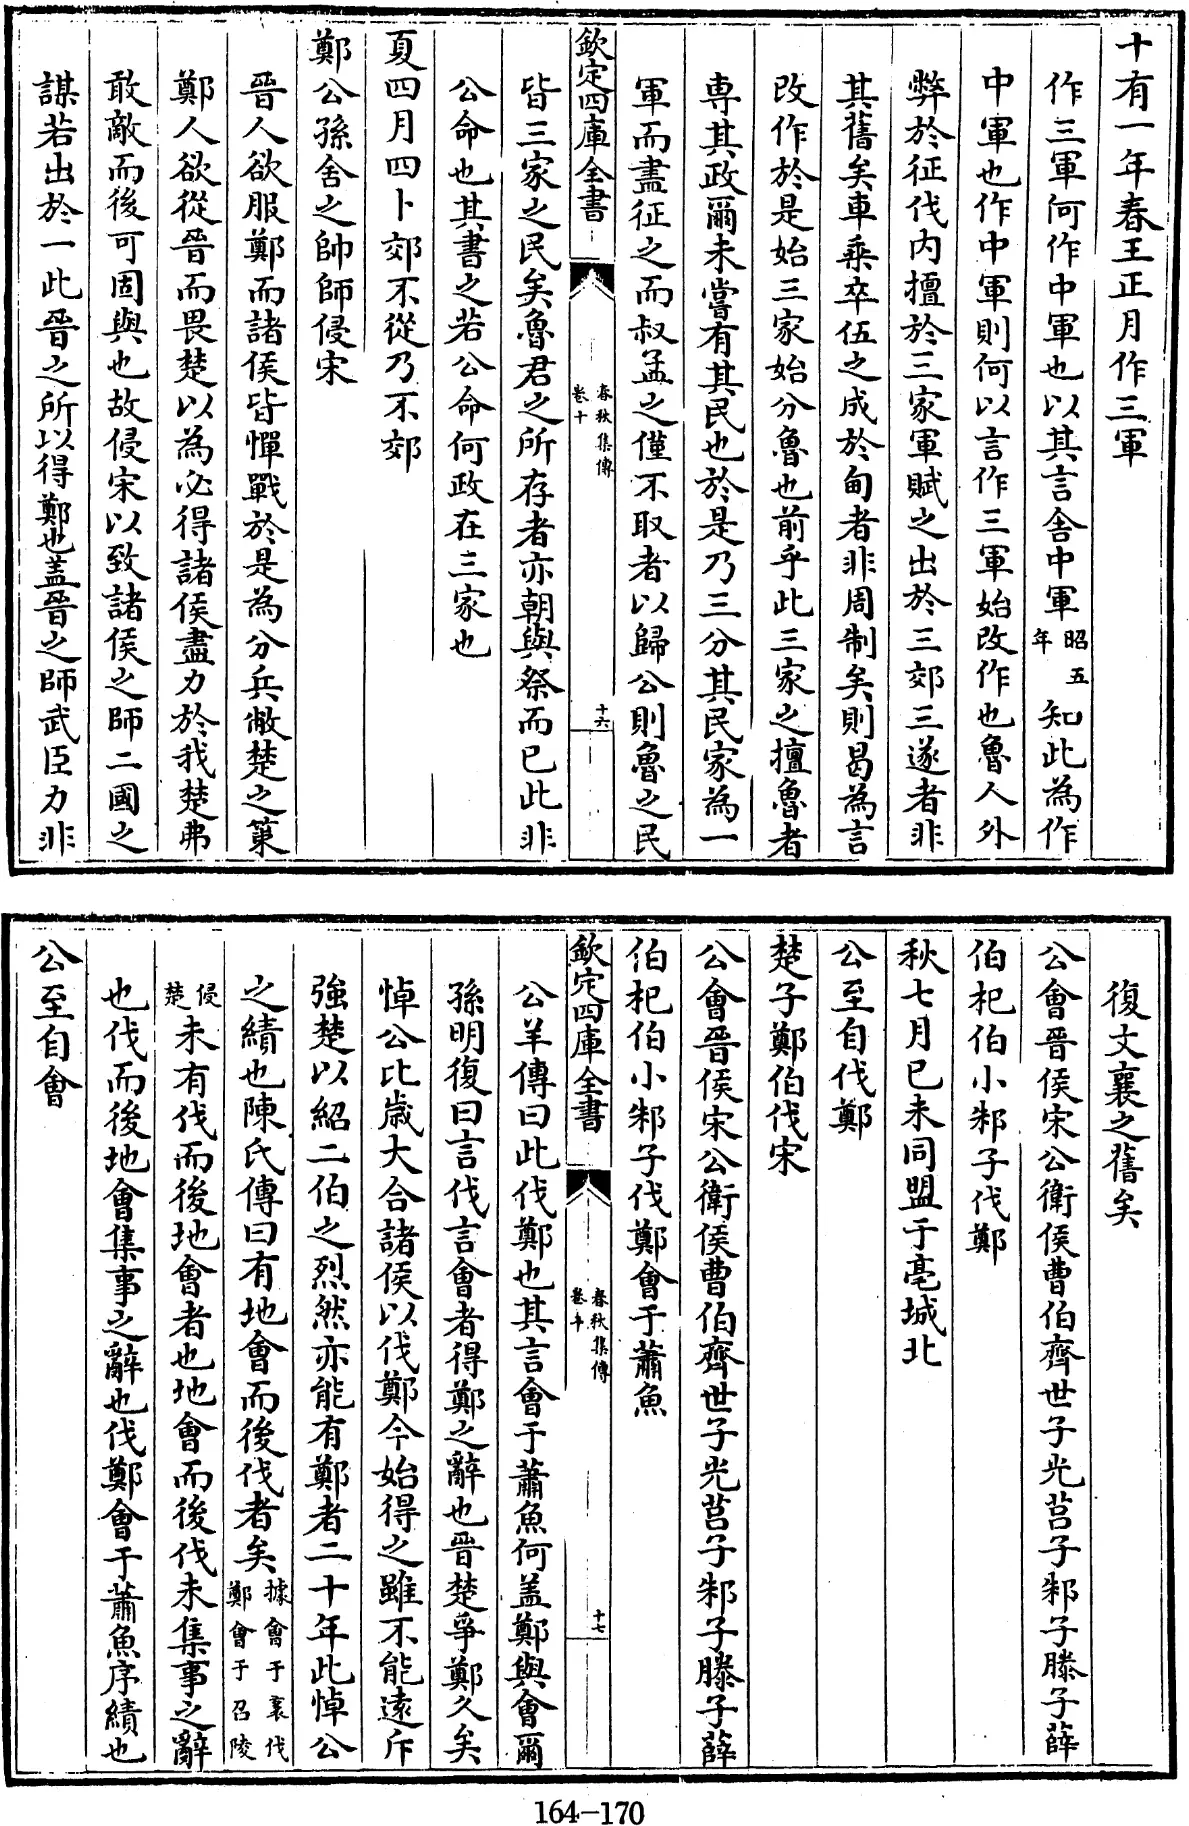 十有一年春王正月作三軍
作三軍何作中軍也以其言舍中軍昭五年知此為作
中軍也作中軍則何以言作三軍始改作也魯人外
弊於征伐内擅於三家軍賦之出於三郊三遂者非
其舊矣車乘卒伍之成於甸者非周制矣則曷為言
改作於是始三家始分魯也前乎此三家之擅魯者
専其政爾未嘗有其民也於是乃三分其民家為一
軍而盡征之而叔孟之僅不取者以歸公則魯之民
欽定四庫全書
春秋集傳
卷十
十六
皆三家之民矣魯君之所存者亦朝與祭而已此非
公命也其書之若公命何政在三家也
夏四月四卜郊不從乃不郊
鄭公孫舍之帥師侵宋
晉人欲服鄭而諸侯皆憚戰於是為分兵敝楚之策
鄭人欲從晉而畏楚以為必得諸侯盡力於我楚弗
敢敵而後可固與也故侵宋以致諸侯之師二國之
謀若出於一此晉之所以得鄭也盖晉之師武臣力非
復文襄之舊矣
公會晉侯宋公衛侯曹伯齊世子光莒子邾子滕子薛
伯杞伯小邾子伐鄭
秋七月已未同盟于亳城北
公至自伐鄭
楚子鄭伯伐宋
公會晉侯宋公衛侯曹伯齊世子光莒子邾子滕子薛
伯杞伯小邾子伐鄭會于蕭魚
欽定四庫全書
春秋集傳
卷十
十七
公羊傳曰此伐鄭也其言會于蕭魚何盖鄭與會爾
孫明復曰言伐言會者得鄭之辭也晉楚爭鄭久矣
悼公比歲大合諸侯以伐鄭今始得之雖不能遠斥
強楚以紹二伯之烈然亦能有鄭者二十年此悼公
之績也陳氏傳曰有地會而後伐者矣據會于袲伐鄭會于召陵
侵楚未有伐而後地會者也地會而後伐未集事之辭
也伐而後地會集事之辭也伐鄭會于蕭魚序績也
公至自會
164-170